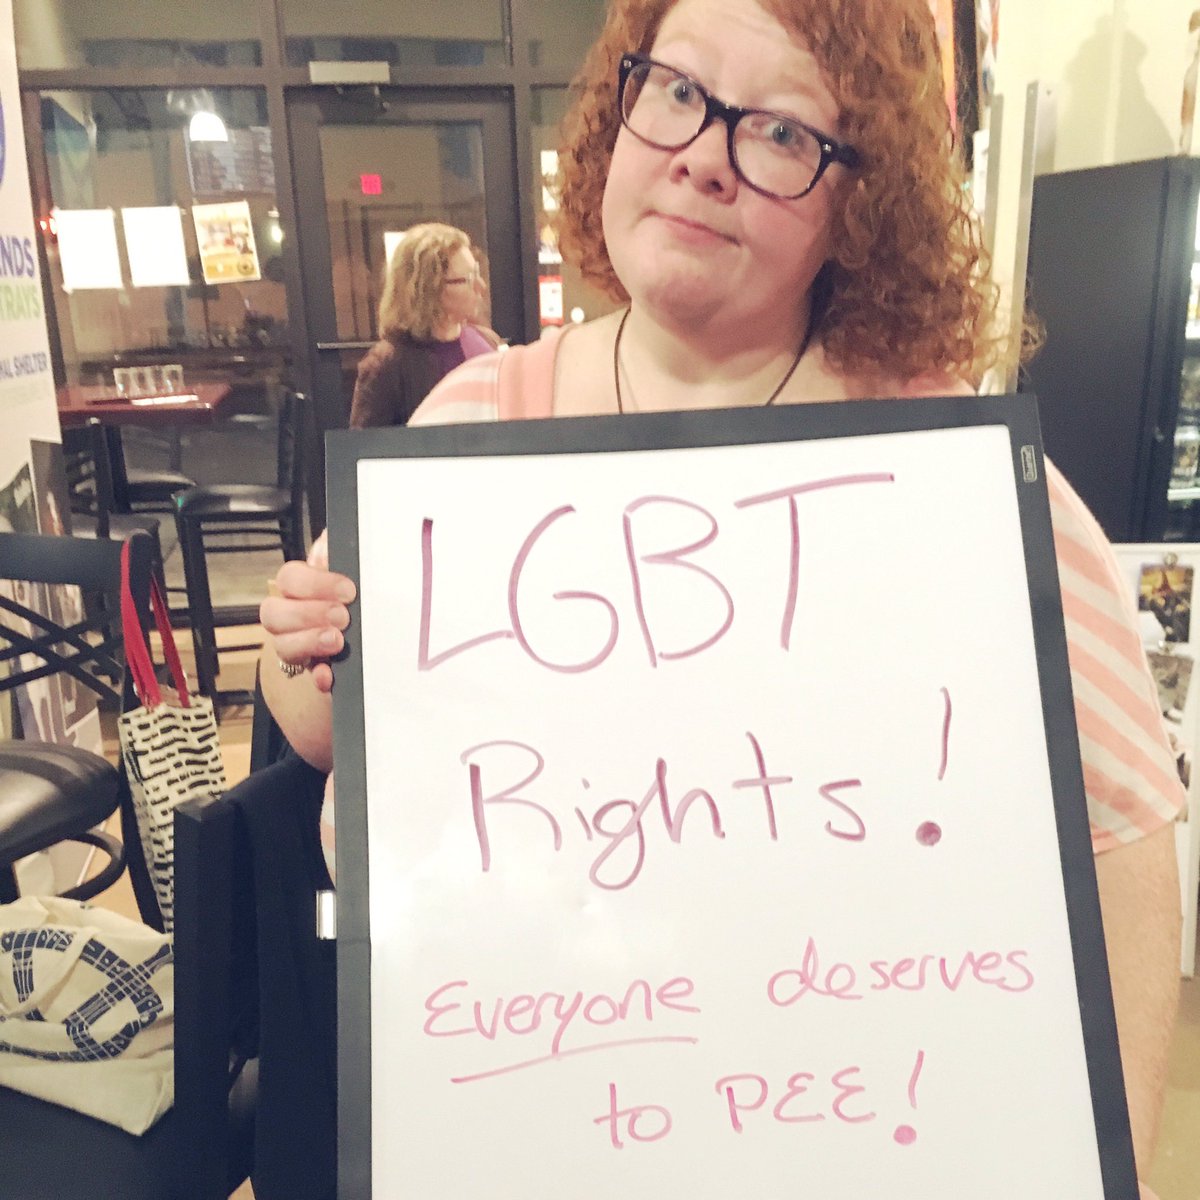 ENDS
TRAYS
HAL SHELTER
LGBT
Rights!
Everyone deserves
to PEE!